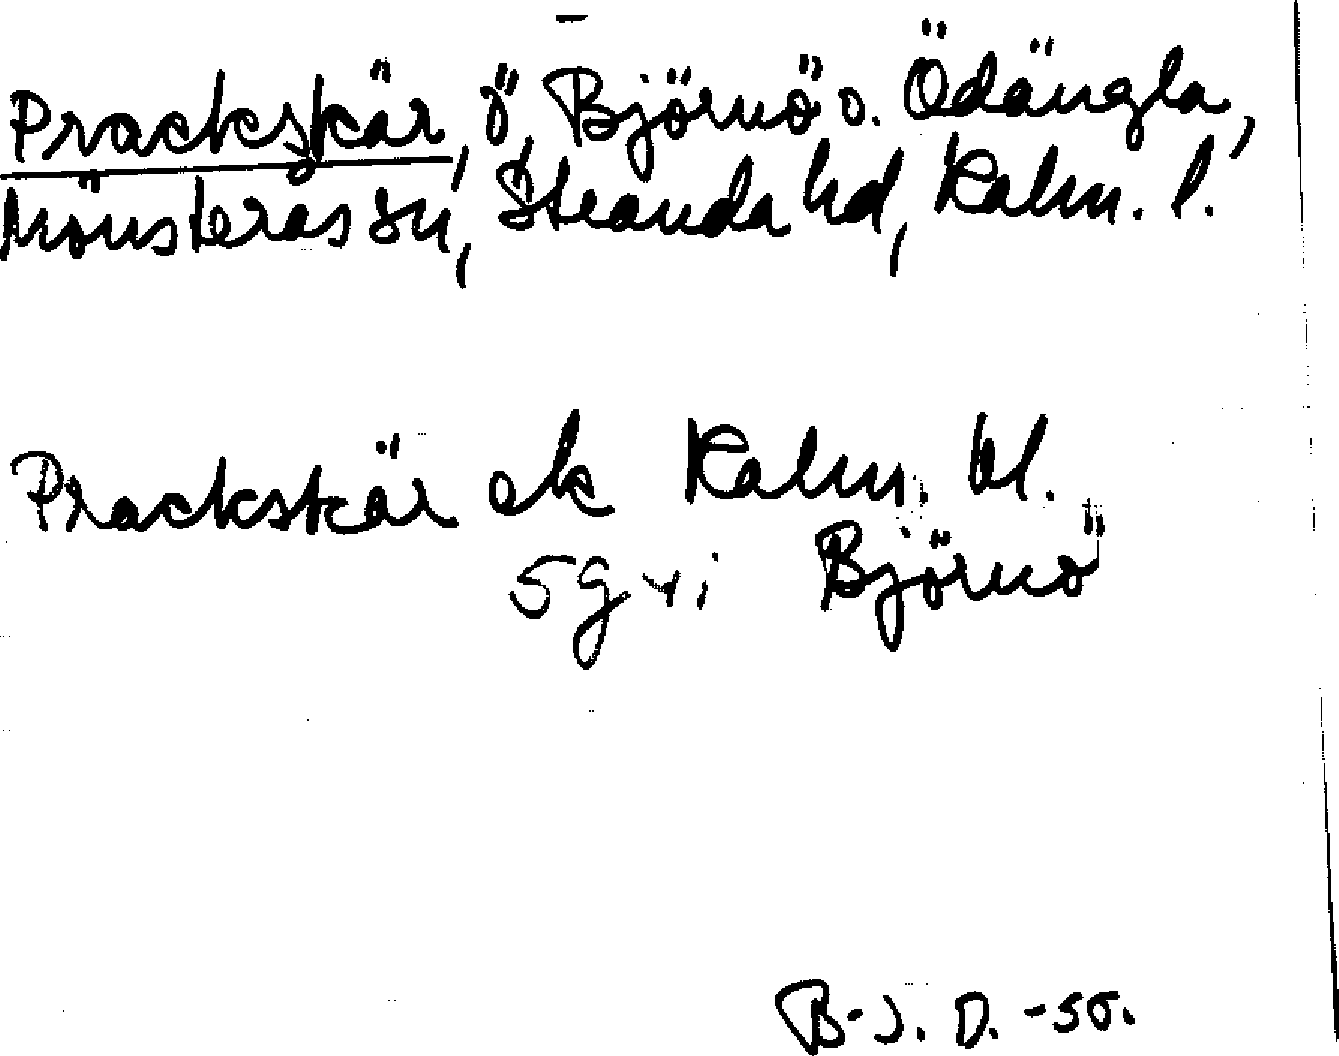 Prackskär, ö, Björnö o. Ödängla,
Mönsterås sn, Stranda hd, Kalm. l.
Prackskär ek Kalm. bl.
5g vi Björnö
B-J. D. -50.